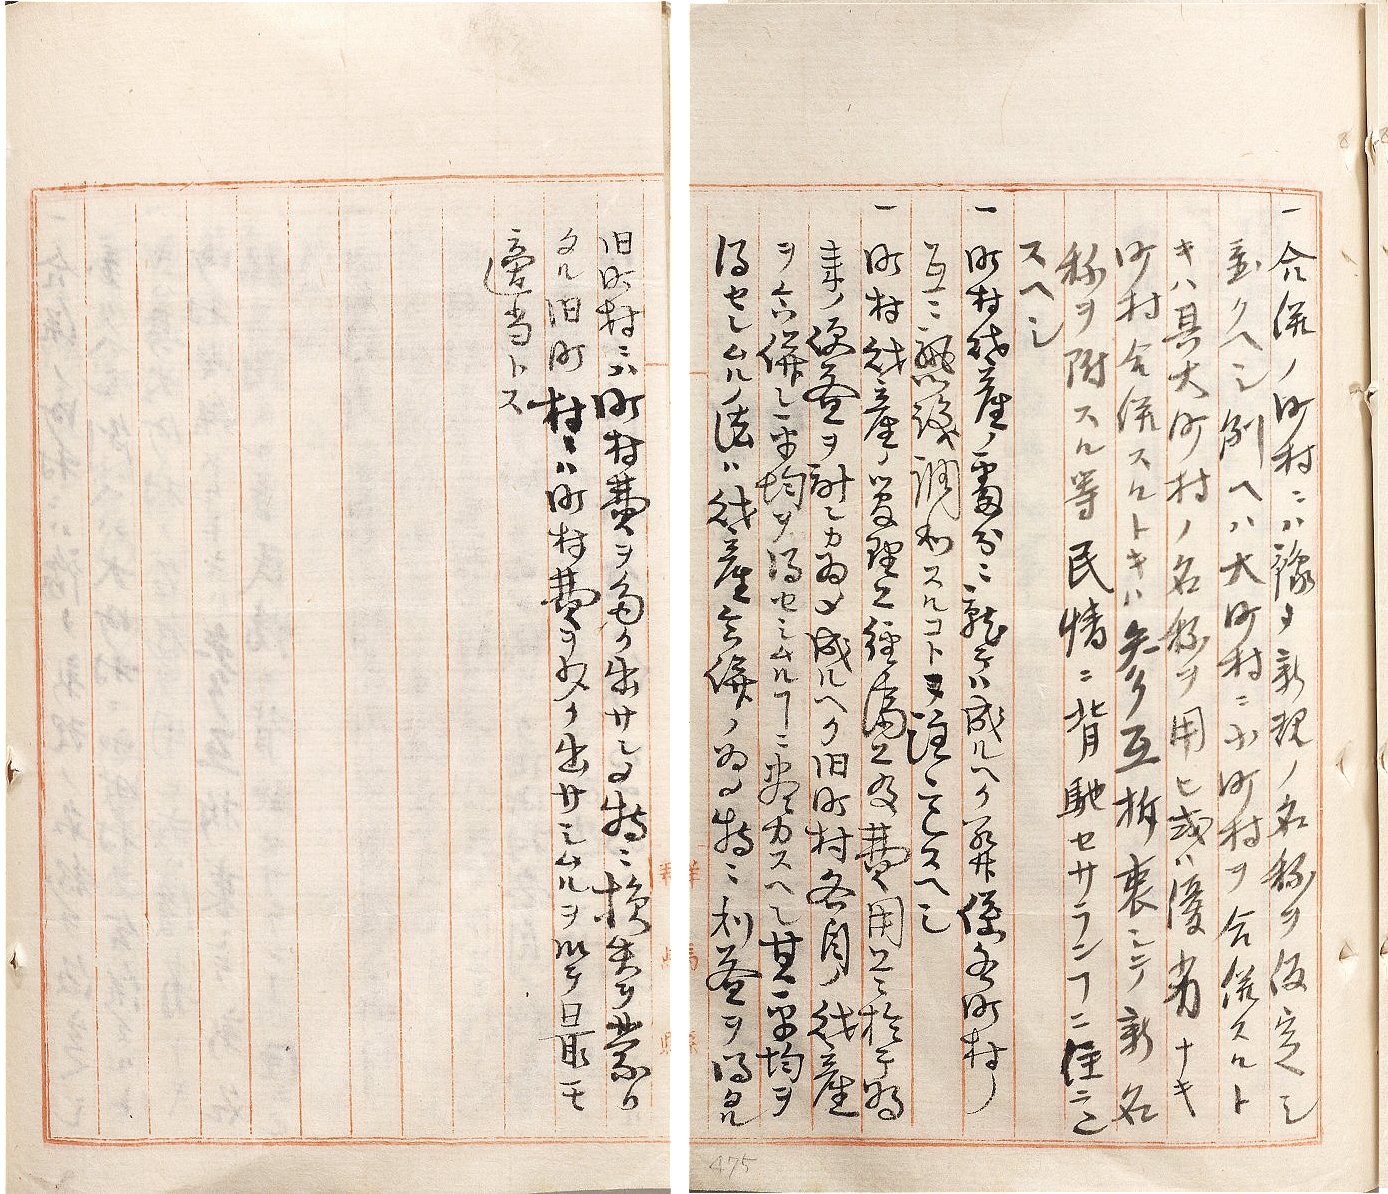 一合併ノ町村ニハ豫メ新規ノ名称ヲ仮定シ
置クヘシ例ヘハ大町村ニ小町村ヲ合併スルト
キハ其大町村ノ名称ヲ用ヒ或ハ優劣ナキ
町村合併スルトキハ各町互折衷シテ新名
称ヲ附スル等民情ニ背馳セサランヿニ注意
スヘシ
一町村財産ノ處分ニ就テハ成ルヘク関係各町村ノ
互ニ熟議調和スルコトヲ注意スヘシ
一町村財産ノ管理上経済上及費用上ニ於テ将
来ノ便益ヲ計ランカ為メ成ルヘク旧町村各自ノ財産
ヲ合併シ平均ヲ得セシムルヿニ盡力スヘシ其平均ヲ
得セシムルノ法ハ財産合併ノ為メ特ニ利益ヲ得タル
旧町村ニハ町村費ヲ多ク出サシメ特ニ損失ヲ蒙リ
タル旧町村ニハ町村費ヲ少ク出サシムルヲ以テ最モ
適当トス
群馬縣
475